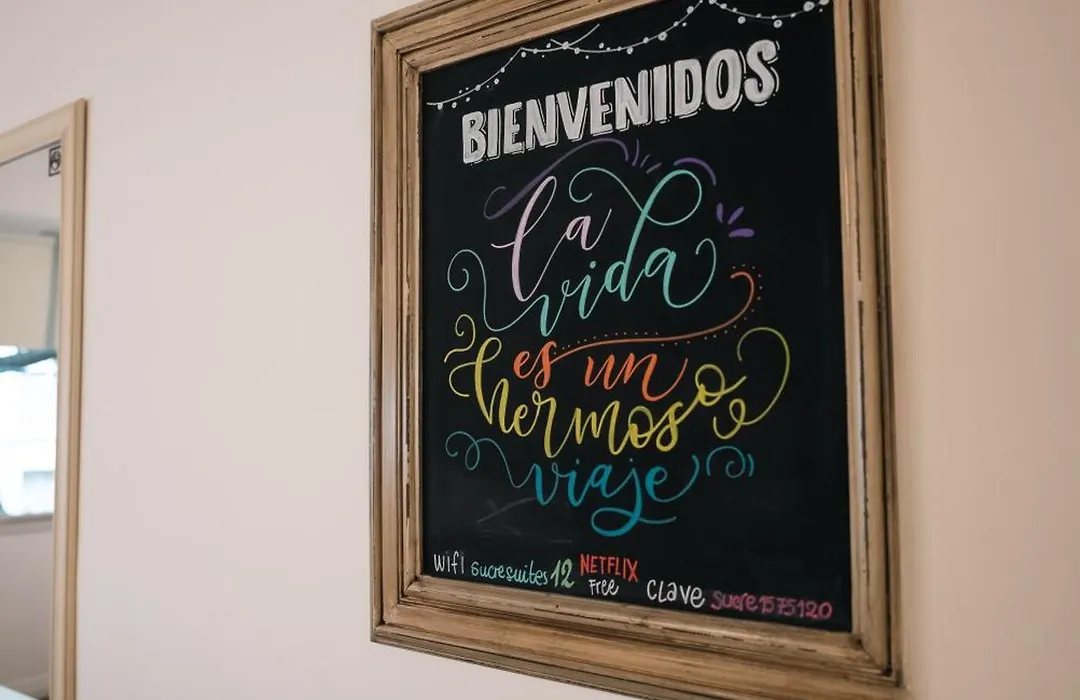 BIENVENIDOS
la
vida
es un
hermoso
viaje
wifi sucresuites12 NETFLIX Free clave sucre1575120